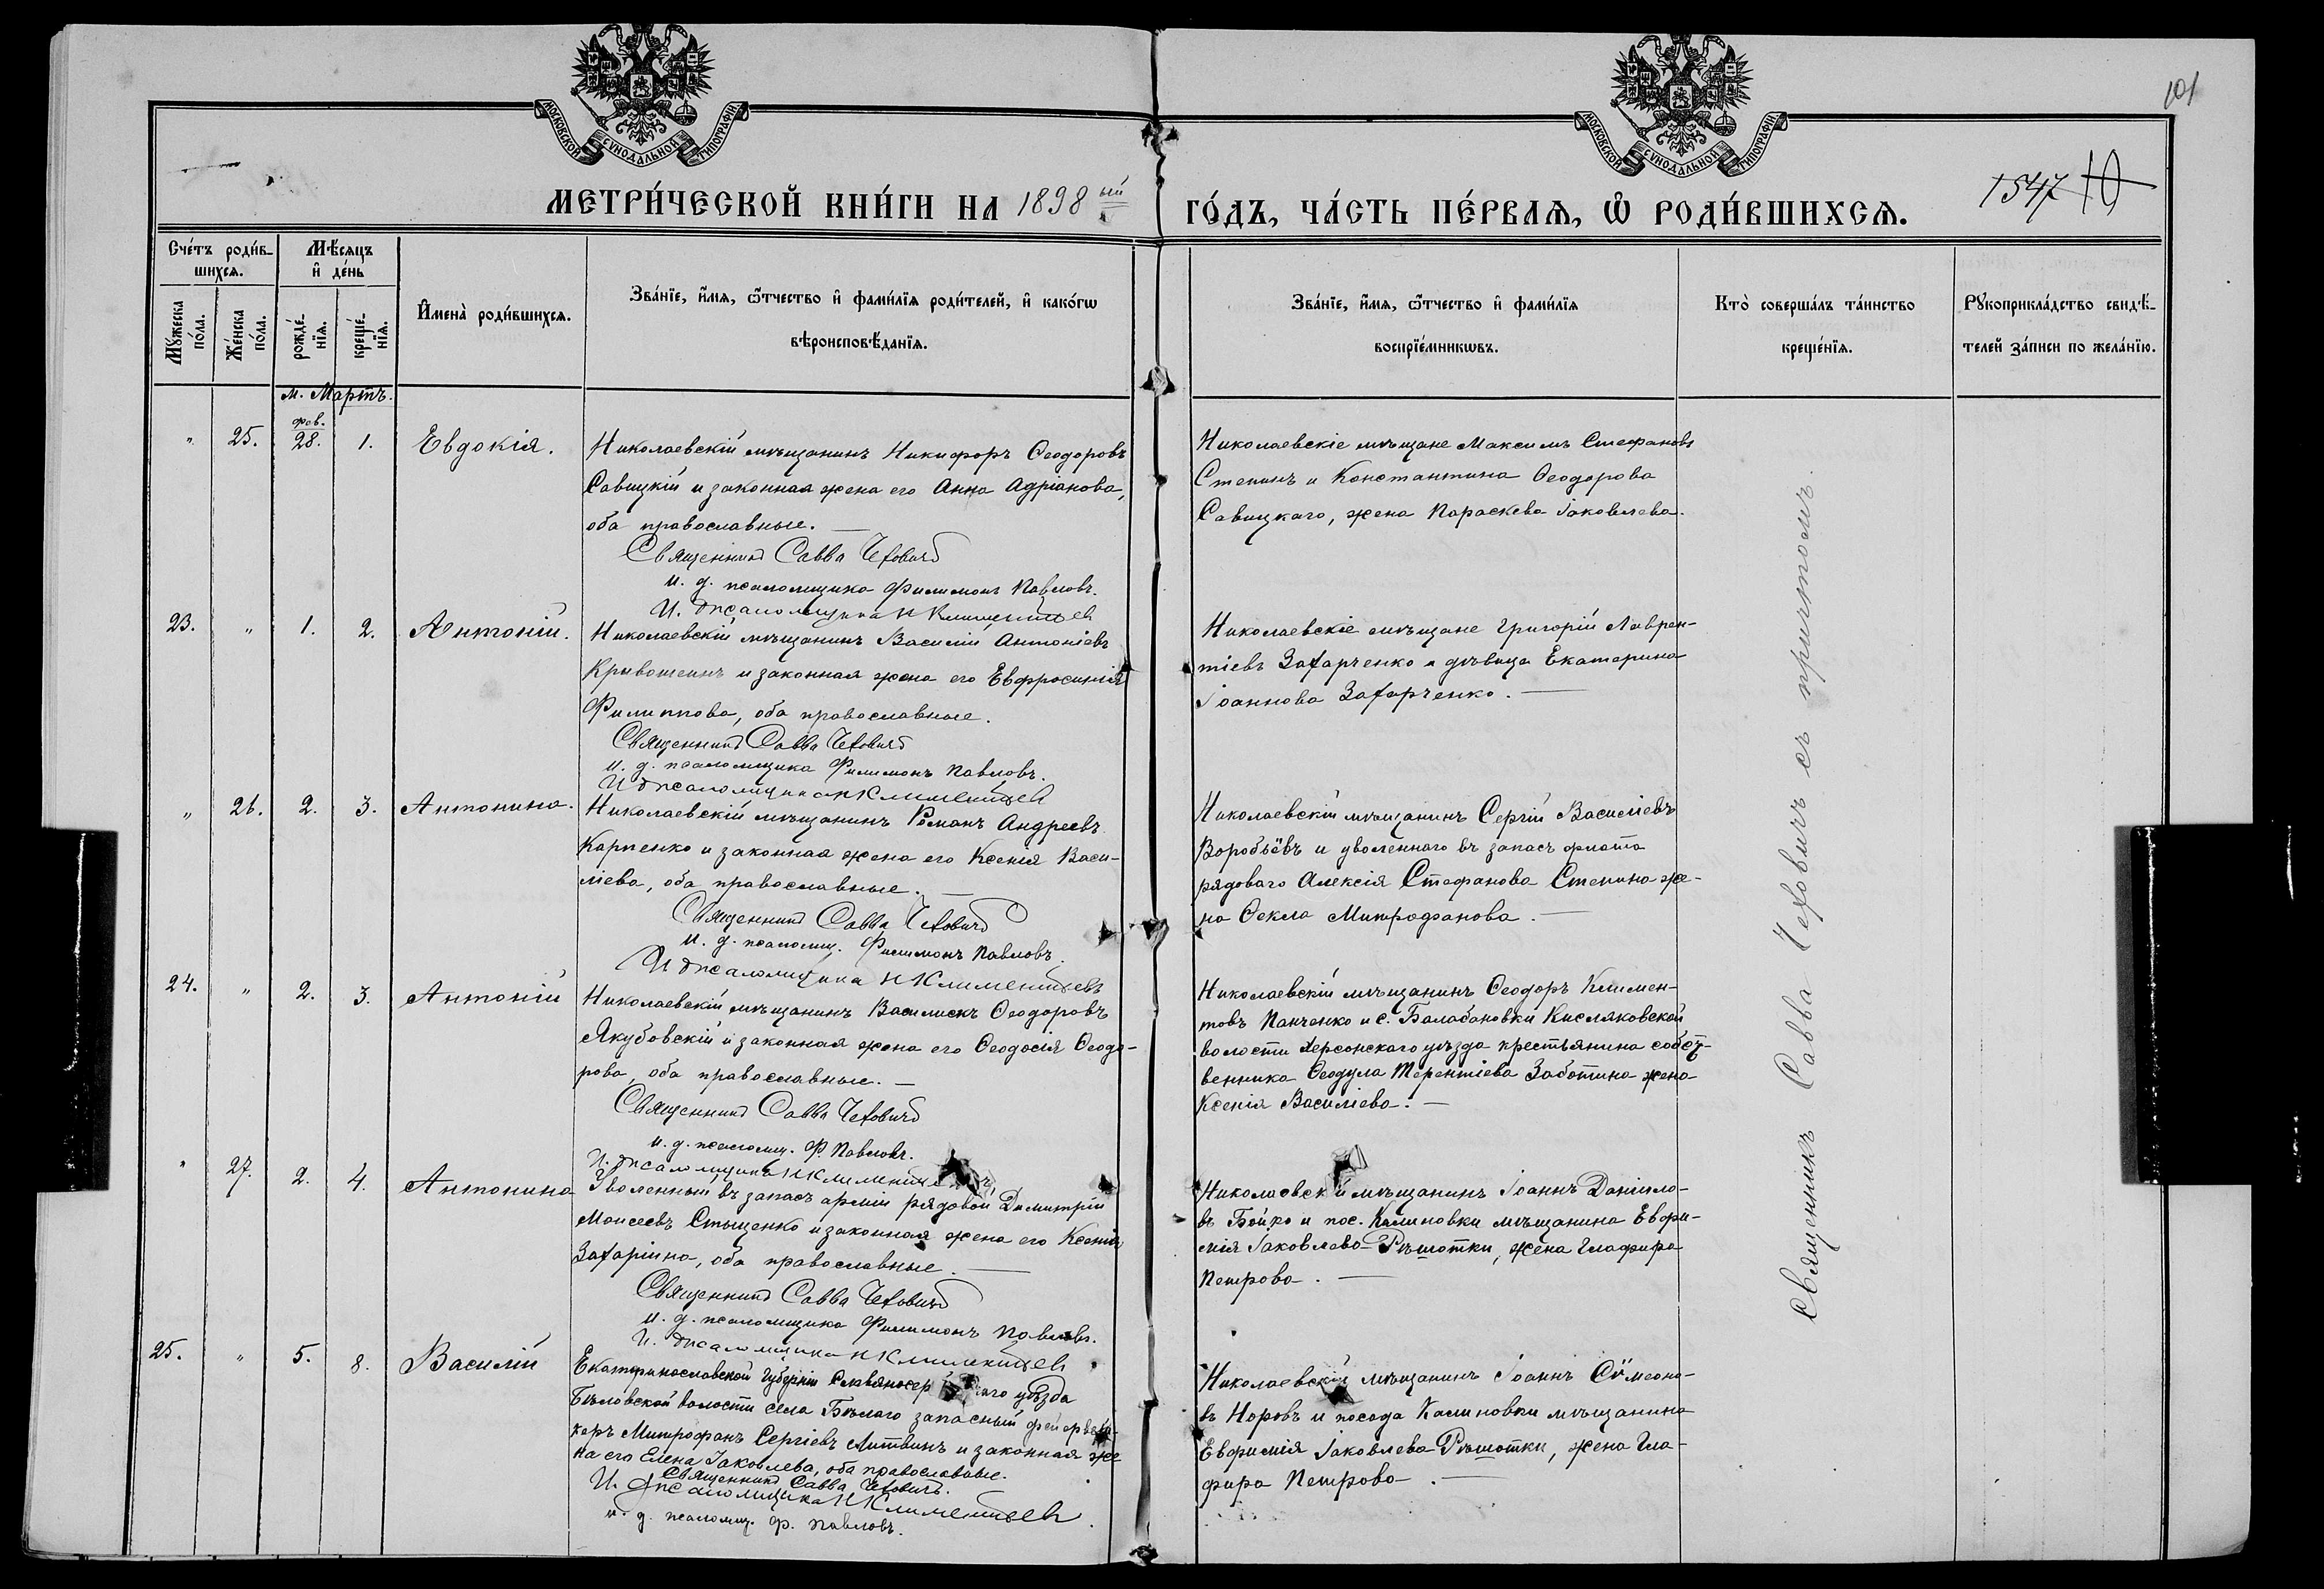 101
МОСКОВСКОЙ СѴНОДАЛЬНОЙ ТИПОГРАФІИ
МОСКОВСКОЙ СѴНОДАЛЬНОЙ ТИПОГРАФІИ
МЕТРИ́ЧЕСКОЙ КНИ́ГИ НА 1898 ый
ГО́ДЪ, ЧА́СТЬ ПЕ́РВАѦ, Ѡ҆ РОДИ́ВШИХСѦ.
1547
Сче́тъ роди́в-
шихсѧ.
Мѣ́сѧцъ
и҆ де́нь
Мꙋ́жеска
по́ла.
Же́нска
по́ла.
рожде́-
нїѧ.
креще́-
нїѧ.
И҆мена̀ роди́вшихсѧ.
Зва́нїе, и҆́мѧ, ѻ҆́тчество и҆ фами́лїѧ роди́телей, и҆ како́гѡ
вѣроисповѣ́данїѧ.
Зва́нїе, и҆́мѧ, ѻ҆́тчество и҆ фами́лїѧ
воспрїе́мникѡвъ.
Кто̀ соверша́лъ та́инство
креще́нїѧ.
Рꙋкоприкла́дство свидѣ́-
телей за́писи по жела́нїю.
м. Мартъ.
" 25. фев. 28. 1. Евдокія.
Николаевскій мѣщанинъ Никифоръ Ѳеодоровъ
Савицкій и законная жена его Анна Адріанова,
оба православные.
Священникъ Савва Чеховичъ
и. д. псаломщика Филимонъ Павловъ.
И. д псаломщика Н Климентьев
Николаевскіе мѣщане Максимъ Стефановъ
Степинъ и Константина Ѳеодорова
Савицкаго, жена Параскева Іаковлева.
23. " 1. 2. Антоній.
Николаевскій мѣщанинъ Василій Антоніевъ
Кривошеинъ и законная жена его Евфросинія
Филиппова, оба православные.
Священникъ Савва Чеховичъ
и. д. псаломщика Филимонъ Павловъ.
И д псаломщика Н Климентьев
Николаевскіе мѣщане Григорій Лаврен-
тіевъ Захарченко и дѣвица Екатерина
Іоаннова Захарченко.
" 26. 2. 3. Антонина.
Николаевскій мѣщанинъ Романъ Андреевъ
Карпенко и законная жена его Ксенія Васи-
ліева, оба православные.
Священникъ Савва Чеховичъ
и. д. псаломщ. Филимонъ Павловъ.
И д псаломщика Н Климентьевъ
Николаевскій мѣщанинъ Сергій Василіевъ
Воробьёвъ и уволеннаго въ запасъ флота
рядоваго Алексія Стефанова Степина же-
на Ѳекла Митрофанова.
24. " 2. 3. Антоній
Николаевскій мѣщанинъ Василискъ Ѳеодоровъ
Якубовскій и законная жена его Ѳеодосія Ѳеодо-
рова, оба православные.
Священникъ Савва Чеховичъ
и. д. псаломщ. Ф. Павловъ.
И. д псаломщика Н Климентьевъ
Николаевскій мѣщанинъ Ѳеодоръ Климен-
товъ Панченко и с. Балабановки Кисляковской
волости Херсонскаго уѣзда крестьянина собст-
венника Ѳеодула Терентіева Заботина жена
Ксенія Василіева.
" 27. 2. 4. Антонина
Уволенный въ запасъ арміи рядовой Димитрій
Моисеевъ Стыценко и законная жена его Ксенія
Захаріина, оба православные.
Священникъ Савва Чеховичъ
и. д. псаломщика Филимонъ Павловъ.
И. д псаломщика Н Климентьев
Николаевскій мѣщанинъ Іоаннъ Даніило-
въ Бойко и пос. Калиновки мѣщанина Евфи-
мія Іаковлева Рѣшотки, жена Глафира
Петрова.
25. " 5. 8. Василій
Екатеринославской Губерніи Славяносер уѣзда
Бѣловской волости села Бѣлаго запасный фейервер-
керъ Митрофанъ Сергіевъ Литвинъ и законная же
на его Елена Іаковлева, оба православные.
Священникъ Савва Чеховичъ.
И. д псаломщика Н Климентьев
и. д. псаломщ. Ф. Павловъ.
Николаевскій мѣщанинъ Іоаннъ Сѵмеоно-
въ Норовъ и посада Калиновки мѣщанина
Евфимія Іаковлева Рѣшотки, жена Гла-
фира Петрова.
Священникъ Савва Чеховичъ съ причтомъ.